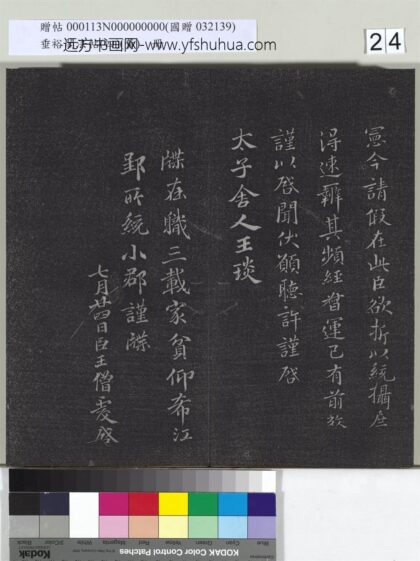 贈帖 000113N000000000(國贈 032139)
远方书画网-www.yfshuhua.com
24
憲今請假在此臣欲折以統攝庶
得速辦其頻經督運已有前故
謹以啓聞伏願聽許謹啓
太子舍人王琰
牒在職三載家貧仰希江
郢所統小郡謹牒
七月廿四日臣王僧虔啓
Blue
Cyan
Green
Yellow
Red
Magenta
White
KODAK Color Control Patches